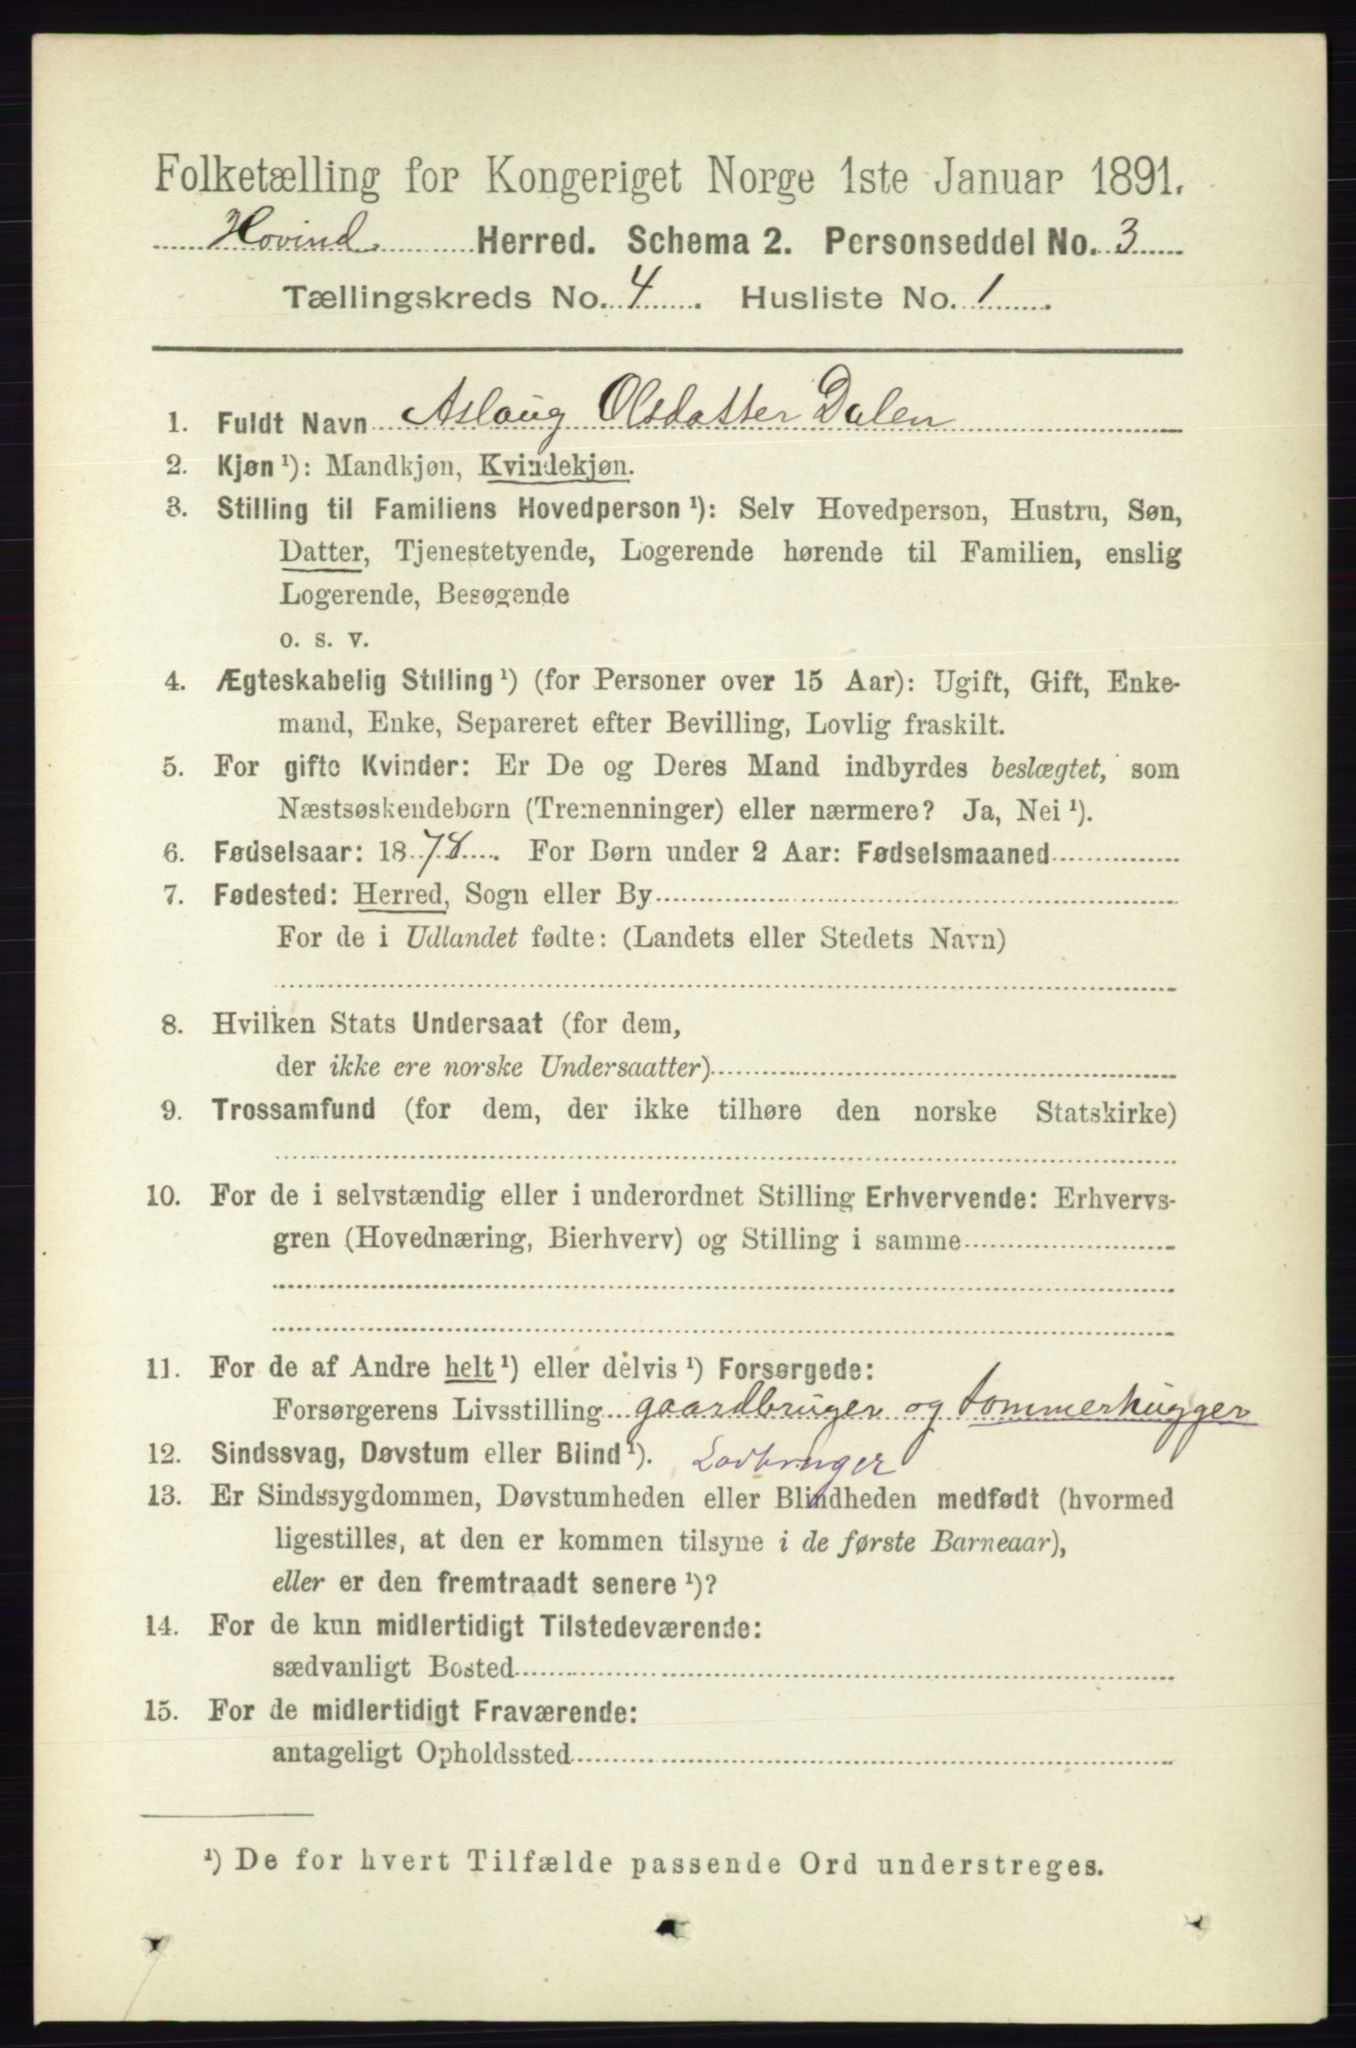 Folketælling for Kongeriget Norge 1ste Januar 1891.
Hovind Herred. Schema 2. Personseddel No. 3
Tællingskreds No. 4. Husliste No. 1.
1. Fuldt Navn Aslaug Olsdatter Dalen
2. Kjøn ¹): Mandkjøn, Kvindekjøn.
3. Stilling til Familiens Hovedperson ¹): Selv Hovedperson, Hustru, Søn,
Datter, Tjenestetyende, Logerende hørende til Familien, enslig
Logerende, Besøgende
o. s. v.
4. Ægteskabelig Stilling ¹) (for Personer over 15 Aar): Ugift, Gift, Enke-
mand, Enke, Separeret efter Bevilling, Lovlig fraskilt.
5. For gifte Kvinder: Er De og Deres Mand indbyrdes beslægtet, som
Næstsøskendebørn (Tremenninger) eller nærmere? Ja, Nei ¹).
6. Fødselsaar: 1878. For Børn under 2 Aar: Fødselsmaaned
7. Fødested: Herred, Sogn eller By
For de i Udlandet fødte: (Landets eller Stedets Navn)
8. Hvilken Stats Undersaat (for dem,
der ikke ere norske Undersaatter)
9. Trossamfund (for dem, der ikke tilhøre den norske Statskirke)
10. For de i selvstændig eller i underordnet Stilling Erhvervende: Erhvervs-
gren (Hovednæring, Bierhverv) og Stilling i samme
11. For de af Andre helt ¹) eller delvis ¹) Forsørgede:
Forsørgerens Livsstilling gaardbruger og tømmerhugger
12. Sindssvag, Døvstum eller Blind ¹).
13. Er Sindssygdommen, Døvstumheden eller Blindheden medfødt (hvormed
ligestilles, at den er kommen tilsyne i de første Barneaar),
eller er den fremtraadt senere ¹)?
14. For de kun midlertidigt Tilstedeværende:
sædvanligt Bosted
15. For de midlertidigt Fraværende:
antageligt Opholdssted
¹) De for hvert Tilfælde passende Ord understreges.